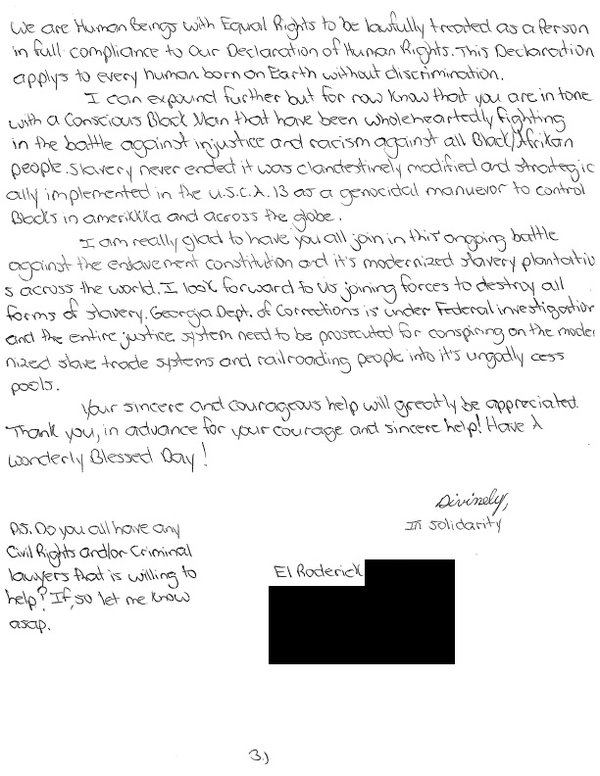 We are Human Beings with Equal Rights to be lawfully treated as a Person
in full compliance to Our Declaration of Human Rights. This Declaration
applys to every human born on Earth without discrimination.
I can expound further but for now know that you are in tone
with a Conscious Black Man that have been wholeheartedly fighting
in the battle against injustice and racism against all Black/Afrikan
people. Slavery never ended it was clandestinely modified and strategic
ally implemented in the U.S.C.A. 13 as a genocidal manuevor to control
Blacks in amerikkka and across the globe.
I am really glad to have you all join in this ongoing battle
against the enslavement constitution and it's modernized slavery plantation
s across the world. I look forward to us joining forces to destroy all
forms of slavery. Georgia Dept. of Corrections is under Federal investigation
and the entire justice system need to be prosecuted for conspiring on the moder
nized slave trade systems and railroading people into it's ungodly cess
pools.
Your sincere and courageous help will greatly be appreciated.
Thank you, in advance for your courage and sincere help! Have A
wonderly Blessed Day!
Divinely,
In Solidarity
P.S. Do you all have any
Civil Rights and/or Criminal
lawyers that is willing to
help? If, so let me know
asap.
El Roderick
3.)